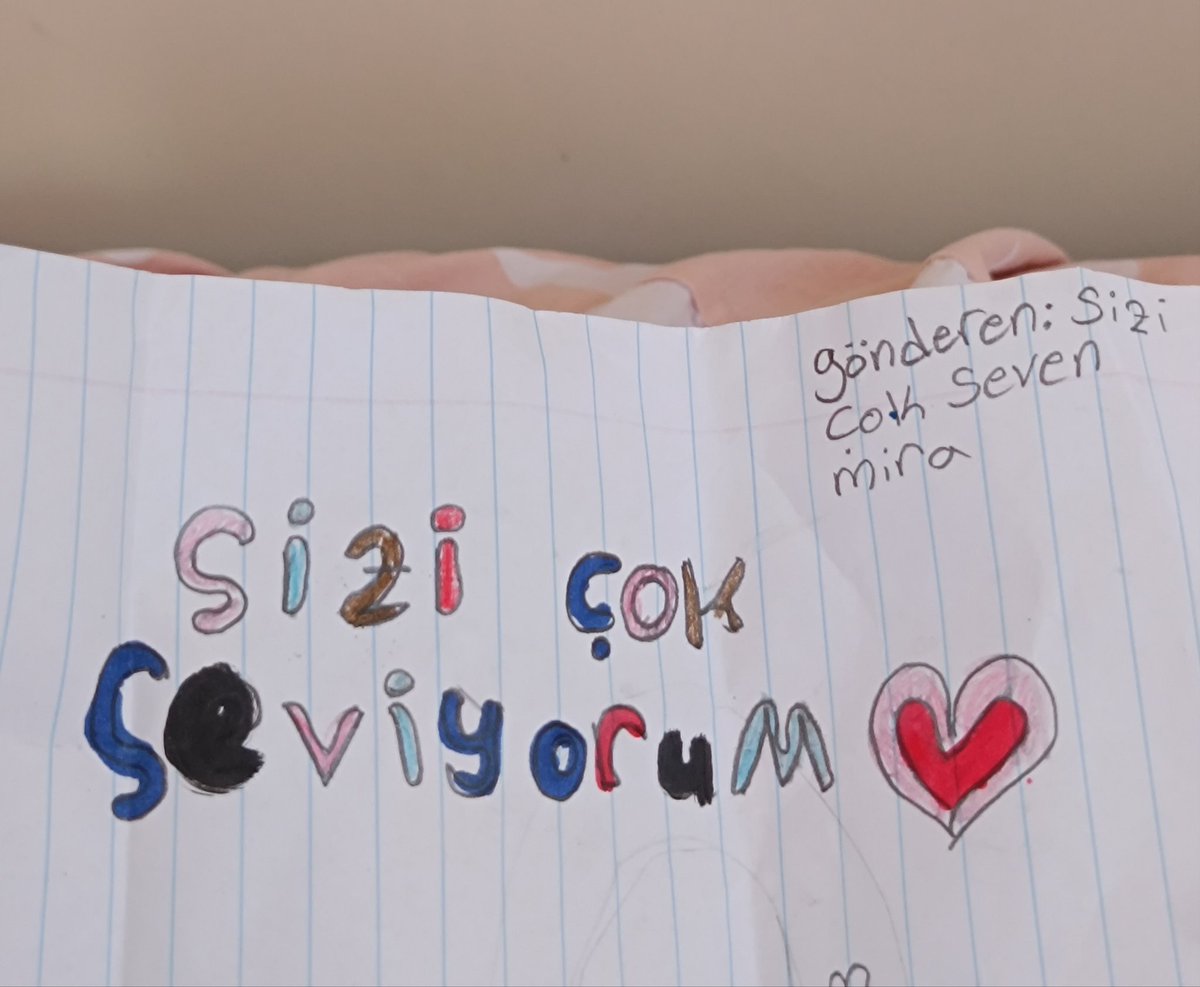 gönderen: sizi
cok seven
mira
sizi çok
seviyorum